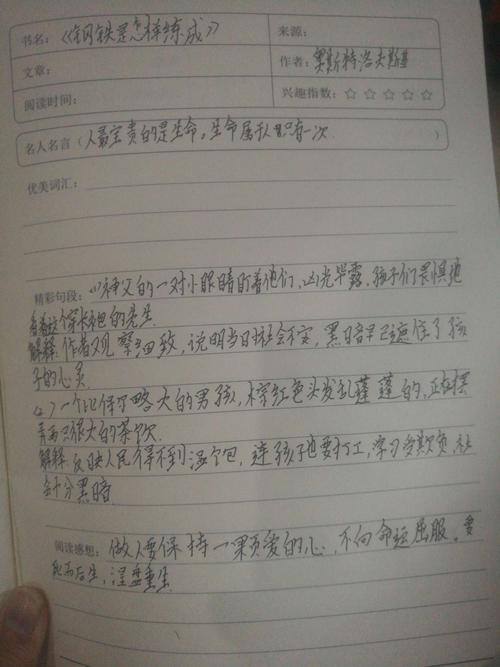 书名：《钢铁是怎样练成》
来源：
文章：
作者：奥斯特洛夫斯基
阅读时间：
兴趣指数：☆ ☆ ☆ ☆ ☆
名人名言（人最宝贵的是生命。生命属于人只有一次）
优美词汇：
精彩句段：(1)神父的一对小眼睛盯着他们，凶光毕露。孩子们畏惧地
看着这个穿长袍的先生
解释：作者观察细致，说明当日社会不安，黑暗早已遮住了孩
子的心灵
(2)一个比保尔略大的男孩，棕红色头发乱蓬蓬的，正在摆
弄两只很大的茶炊
解释 反映人民得不到温饱，连孩子也要打工，学习多欺负 社
会十分黑暗
阅读感想：做人要保持一颗爱的心，不向命运屈服。要
死而后生，涅盘重生